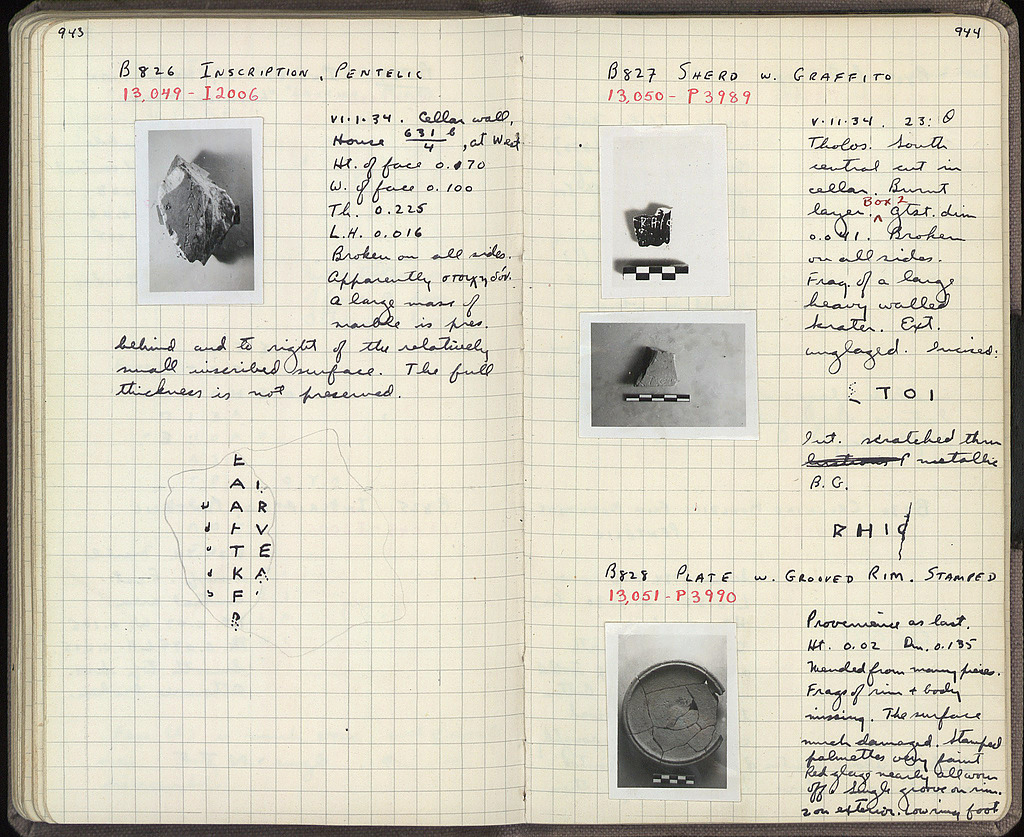 943
B 826 INSCRIPTION, PENTELIC
13,049 - I 2006
VI·1·34. Cellar wall,
House 631 b/4, at West
Ht. of face 0.070
W. of face 0.100
Th. 0.225
L.H. 0.016
Broken on all sides.
Apparently στοιχηδόν.
A large mass of
marble is pres.
behind and to right of the relatively
small inscribed surface. The full
thickness is not preserved.
E
A I
A R
F V
T E
K A
F
R
944
B827 SHERD W. GRAFFITO
13,050 - P 3989
V·11·34. 23:Θ
Tholos. South
central cut in
cellar. Burnt
layer. Box 2 Gtst. dim
0.041. Broken
on all sides.
Frag. of a large
heavy walled
krater. Ext.
unglazed. Incised:
T O I
Int. scratched thru
metallic
B.G.
R H I C
B828 PLATE W. GROOVED RIM. STAMPED
13,051 - P 3990
Provenience as last.
Ht. 0.02 Dm. 0.135
Mended from many pieces.
Frags of rim + body
missing. The surface
much damaged. Stamped
palmettes very faint
Red glaze nearly all worn
off. Single groove on rim.
2 on exterior. Low ring foot